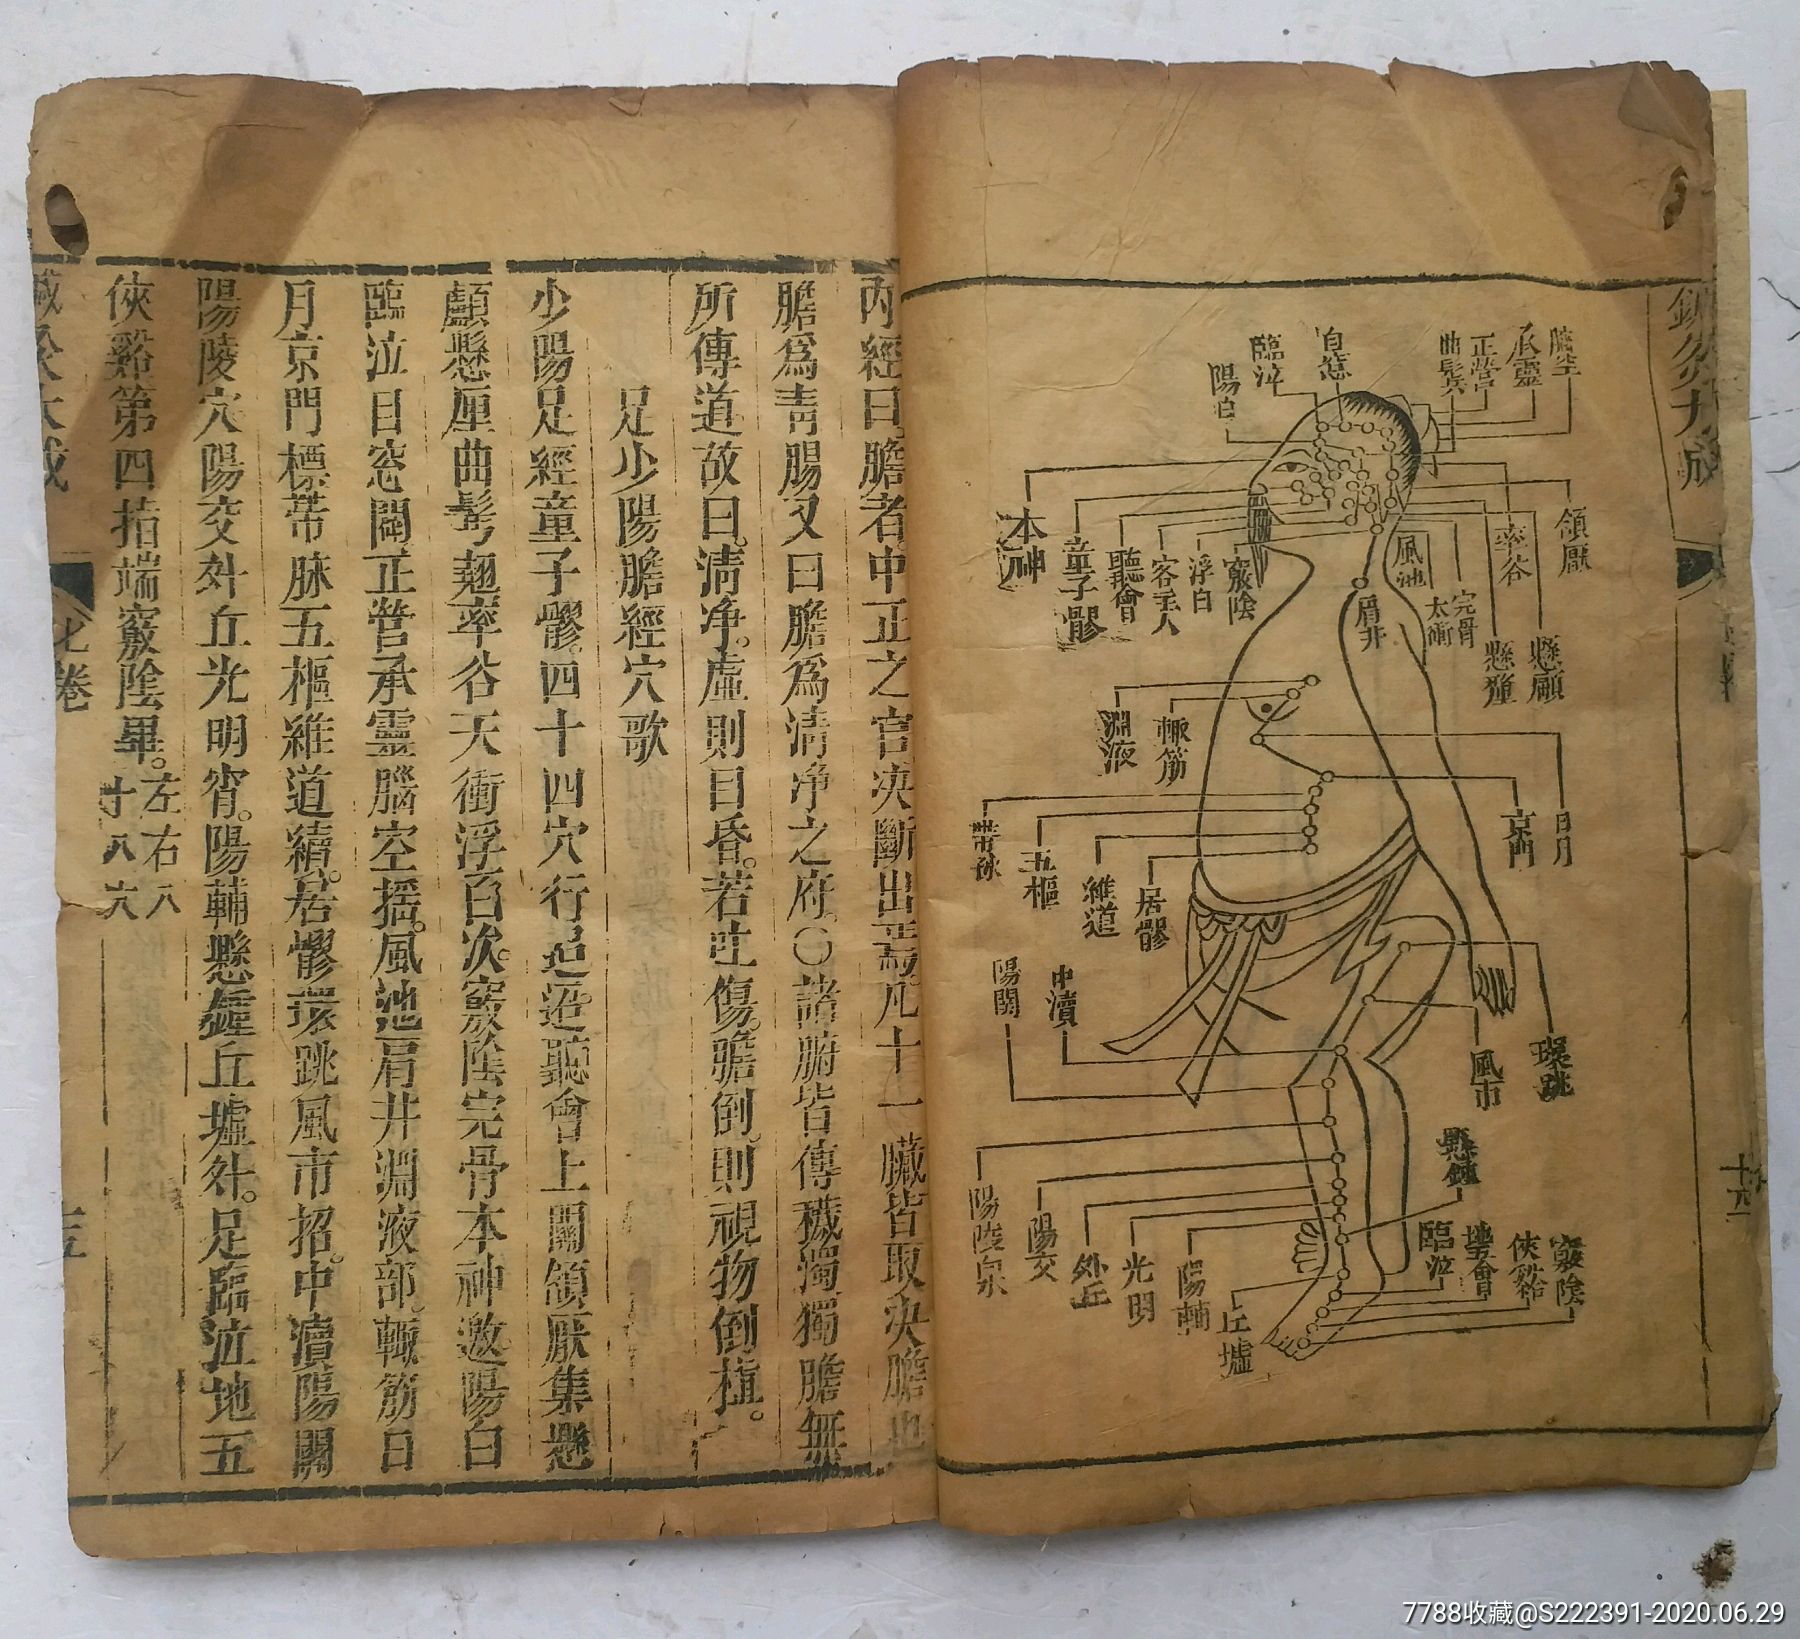 陽白
臨泣
目窓
曲髩
正營
承靈
腦空
本神
童子髎
聽會
客主人
浮白
竅陰
風池
完骨
率谷
頷厭
肩井
太衝
懸釐
懸顱
淵液
輒筋
帶脉
五樞
維道
居髎
京門
日月
陽關
中瀆
風市
環跳
懸鐘
陽陵泉
陽交
外丘
光明
陽輔
丘墟
臨泣
地五會
俠谿
竅陰
內經曰膽者中正之官决斷出焉凡十一臟皆取决膽也
膽爲靑腸又曰膽爲清净之府〇諸腑皆傳穢濁獨膽無
所傳道故曰清净虛則目昏若吐傷膽倒則視物倒植
足少陽膽經穴歌
少陽足經童子髎四十四穴行迢迢聽會上關頷厭集懸
顱懸厘曲髩翹率谷天衝浮白次竅陰完骨本神邀陽白
臨泣目窓闢正營承靈腦空揺風池肩井淵液部輒筋日
月京門標帶脉五樞維道續居髎環跳風市招中瀆陽關
陽陵穴陽交外丘光明宵陽輔懸鐘丘墟外足臨泣地五
俠谿第四指端竅陰畢左右八十八穴
七卷
7788收藏@S222391-2020.06.29